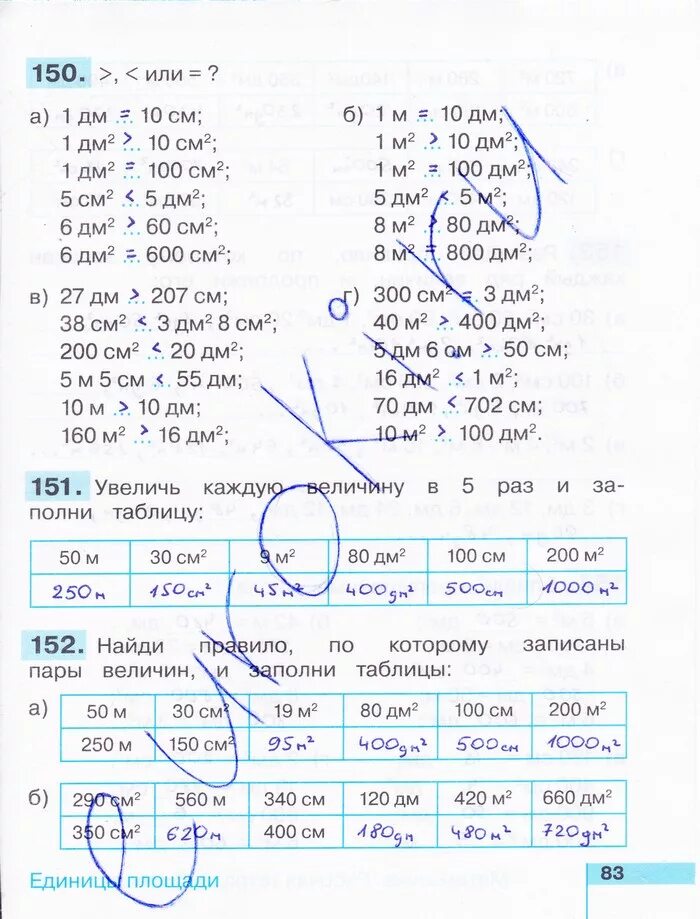 150. >, < или = ?
а) 1 дм = 10 см;
1 дм² > 10 см²;
1 дм² = 100 см²;
5 см² < 5 дм²;
6 дм² > 60 см²;
6 дм² = 600 см²;
б) 1 м = 10 дм;
1 м² > 10 дм²;
1 м² = 100 дм²;
5 дм² < 5 м²;
8 м² > 80 дм²;
8 м² = 800 дм²;
в) 27 дм > 207 см;
38 см² < 3 дм² 8 см²;
200 см² < 20 дм²;
5 м 5 см < 55 дм;
10 м > 10 дм;
160 м² > 16 дм²;
г) 300 см² = 3 дм²;
40 м² > 400 дм²;
5 дм 6 см > 50 см;
16 дм² < 1 м²;
70 дм < 702 см;
10 м² > 100 дм².
151. Увеличь каждую величину в 5 раз и за-
полни таблицу:
50 м 30 см² 9 м² 80 дм² 100 см 200 м²
250 м 150 см² 45 м² 400 дм² 500 см 1000 м²
152. Найди правило, по которому записаны
пары величин, и заполни таблицы:
а) 50 м 30 см² 19 м² 80 дм² 100 см 200 м²
250 м 150 см² 95 м² 400 дм² 500 см 1000 м²
б) 290 см² 560 м 340 см 120 дм 420 м² 660 дм²
350 см² 620 м 400 см 180 дм 480 м² 720 дм²
Единицы площади
83